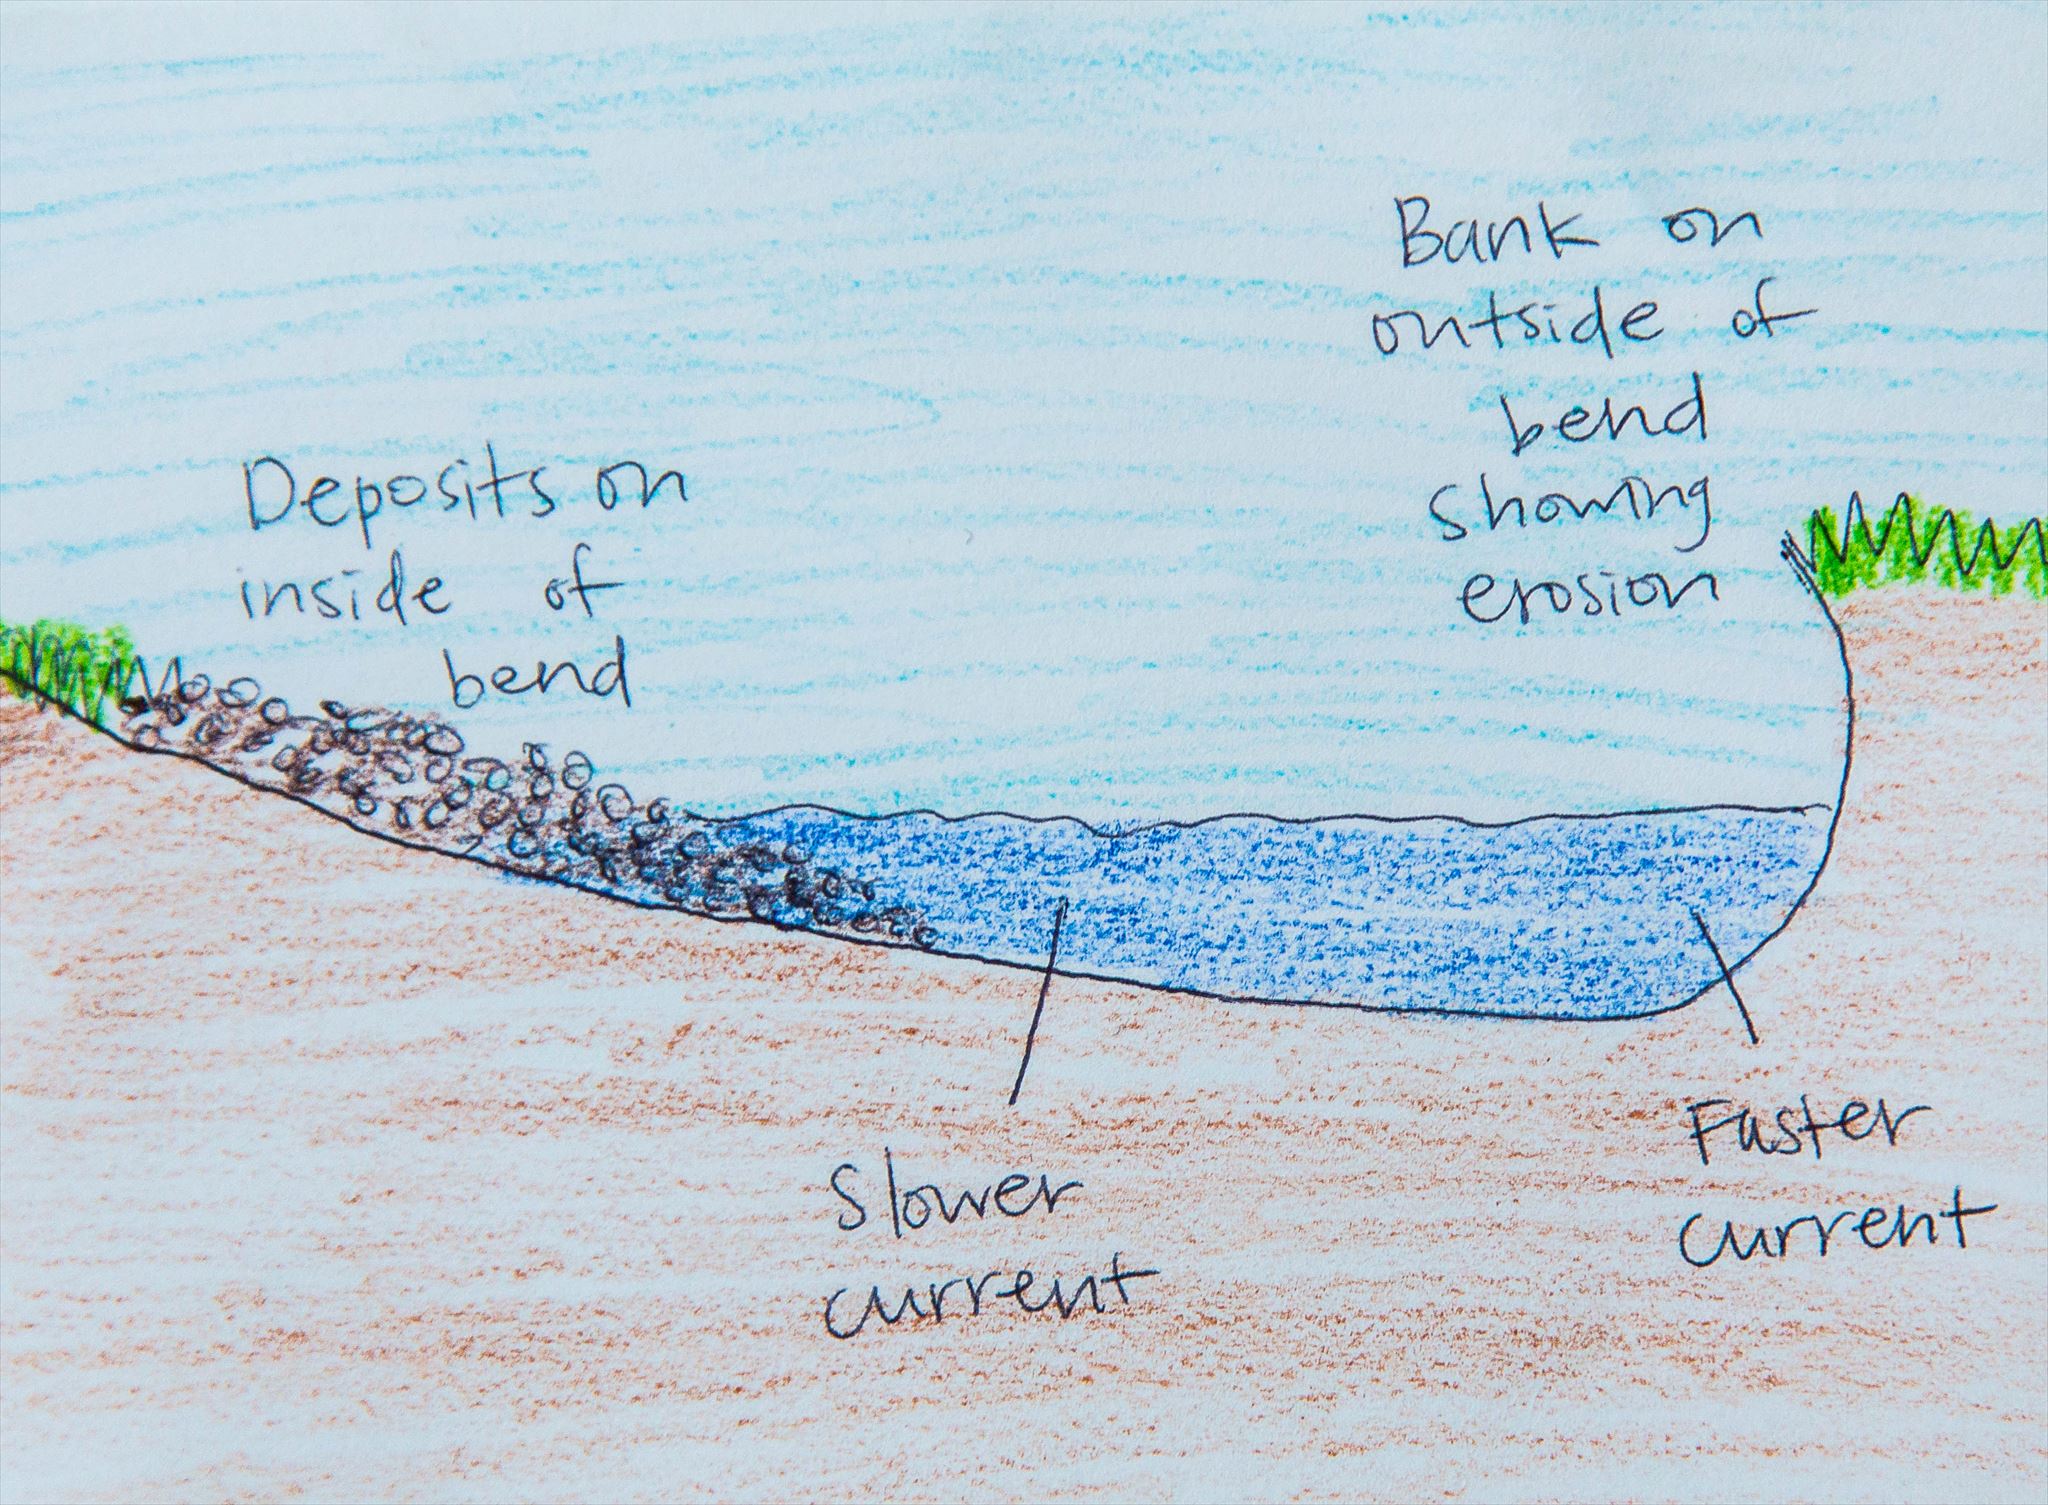 Bank on
outside of
bend
showing
erosion
Deposits on
inside of
bend
Slower
current
Faster
current